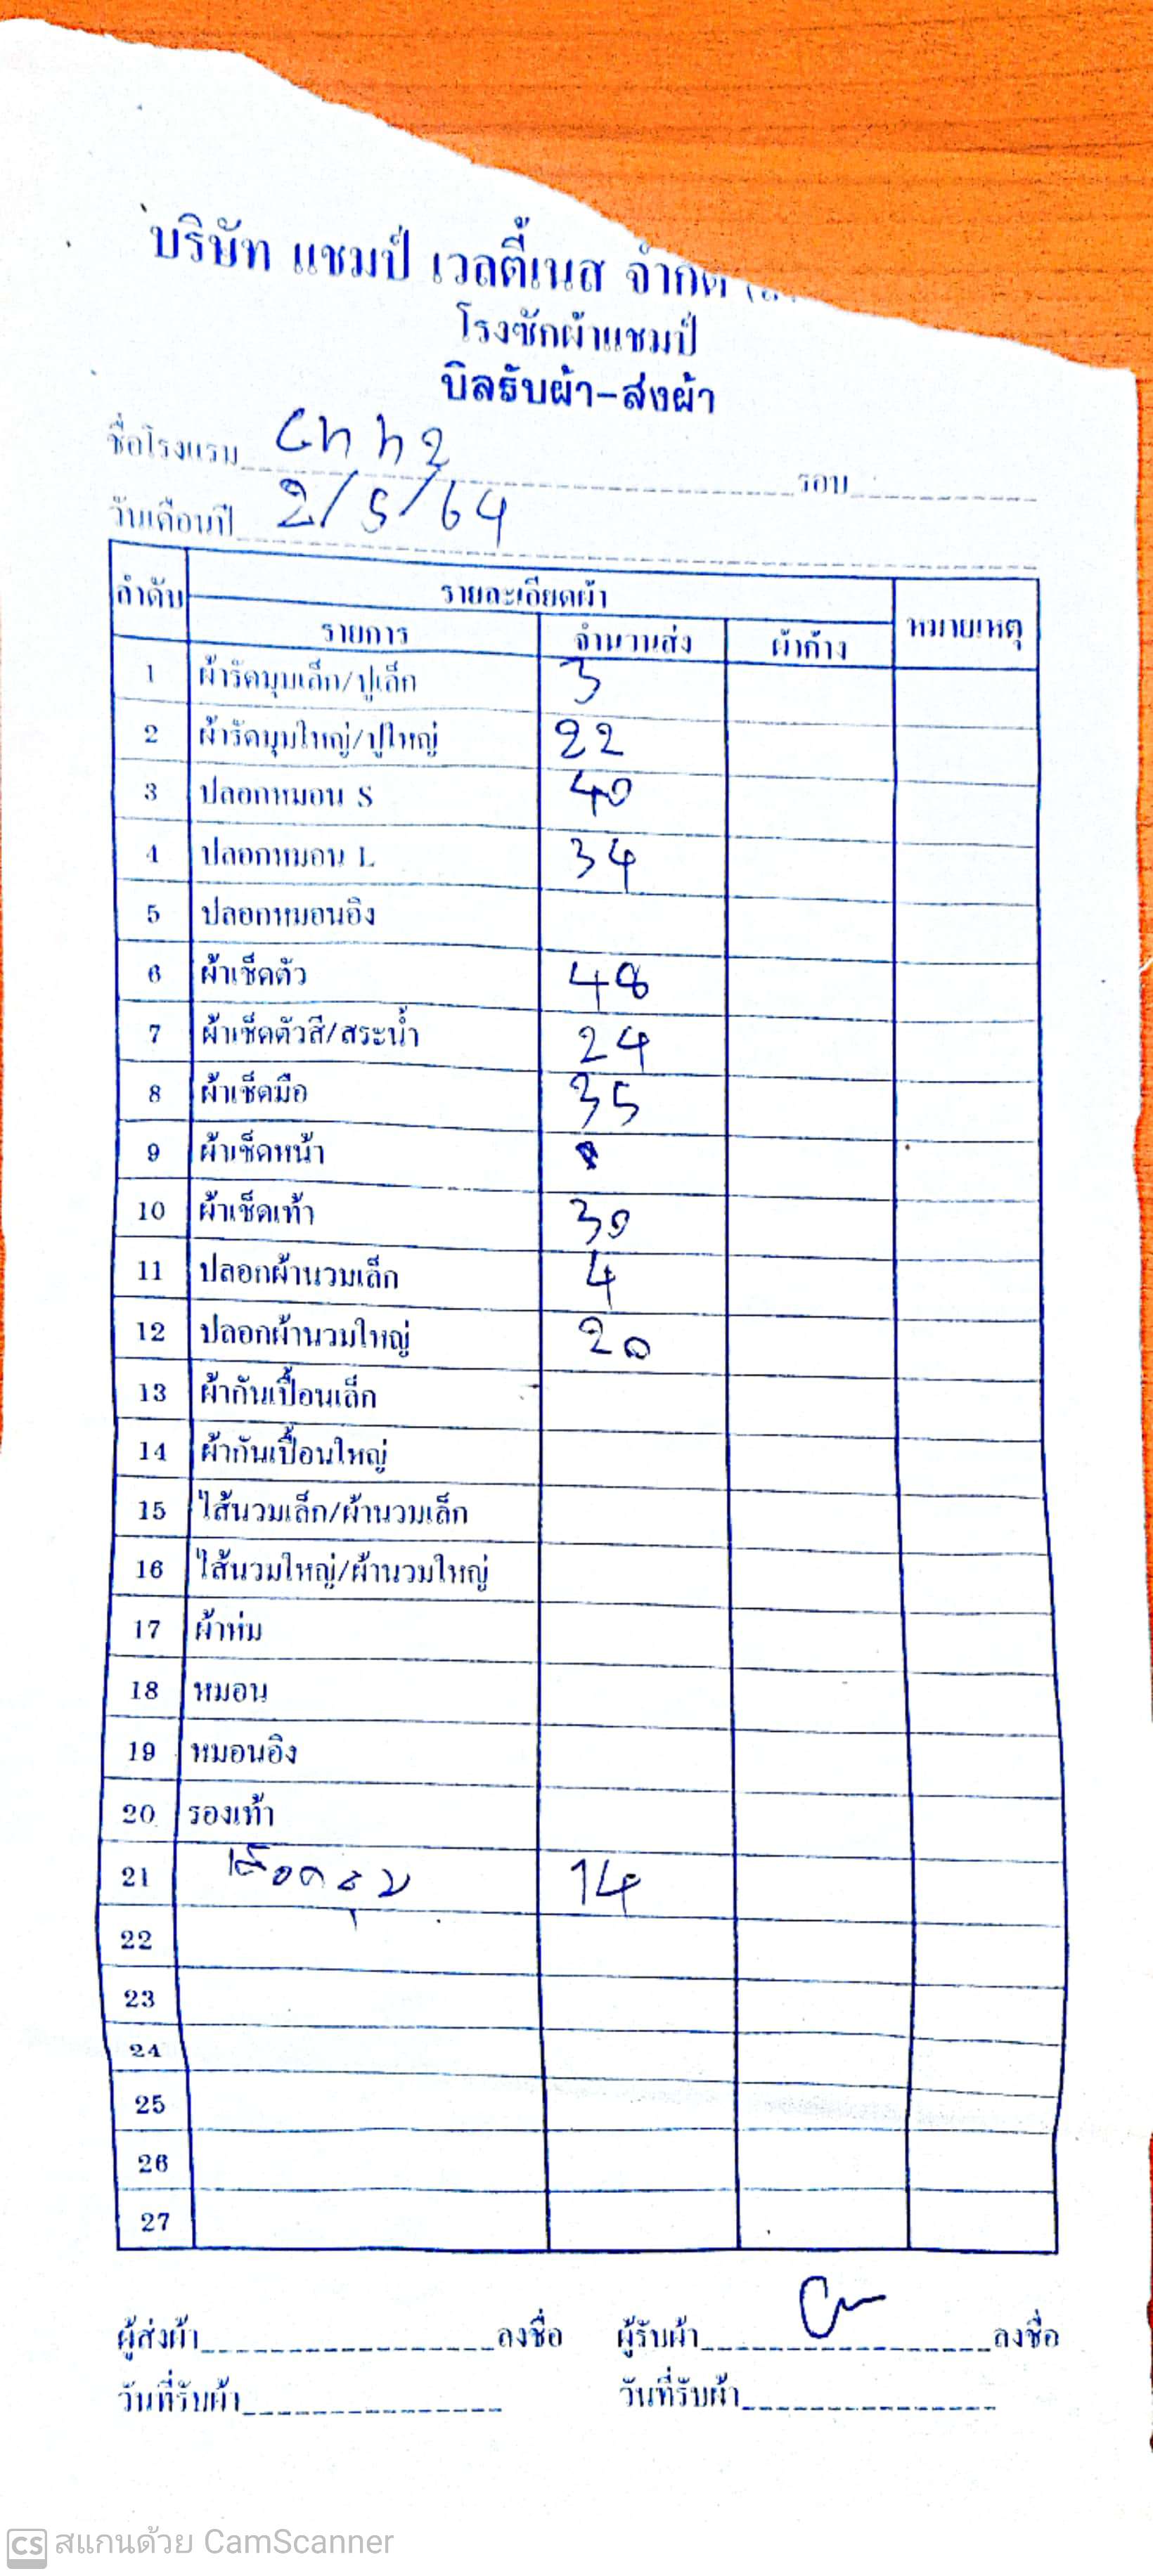 บริษัท แชมป์ เวลตี้เนส จำกัด
โรงซักผ้าแชมป์
บิลรับผ้า-ส่งผ้า
ชื่อโรงแรม รอบ
วันเดือนปี 2/5/64
ลำดับ รายละเอียดผ้า หมายเหตุ
รายการ จำนวนส่ง ผ้าค้าง
1 ผ้ารัดมุมเล็ก/ปูเล็ก 3
2 ผ้ารัดมุมใหญ่/ปูใหญ่ 22
3 ปลอกหมอน S 40
4 ปลอกหมอน L 34
5 ปลอกหมอนอิง
6 ผ้าเช็ดตัว 48
7 ผ้าเช็ดตัวสี/สระน้ำ 24
8 ผ้าเช็ดมือ 35
9 ผ้าเช็ดหน้า
10 ผ้าเช็ดเท้า 30
11 ปลอกผ้านวมเล็ก 4
12 ปลอกผ้านวมใหญ่ 20
13 ผ้ากันเปื้อนเล็ก
14 ผ้ากันเปื้อนใหญ่
15 ไส้นวมเล็ก/ผ้านวมเล็ก
16 ไส้นวมใหญ่/ผ้านวมใหญ่
17 ผ้าห่ม
18 หมอน
19 หมอนอิง
20 รองเท้า
21 เสื้อคลุม 14
22
23
24
25
26
27
ผู้ส่งผ้า ลงชื่อ ผู้รับผ้า ลงชื่อ
วันที่รับผ้า วันที่รับผ้า
CS สแกนด้วย CamScanner